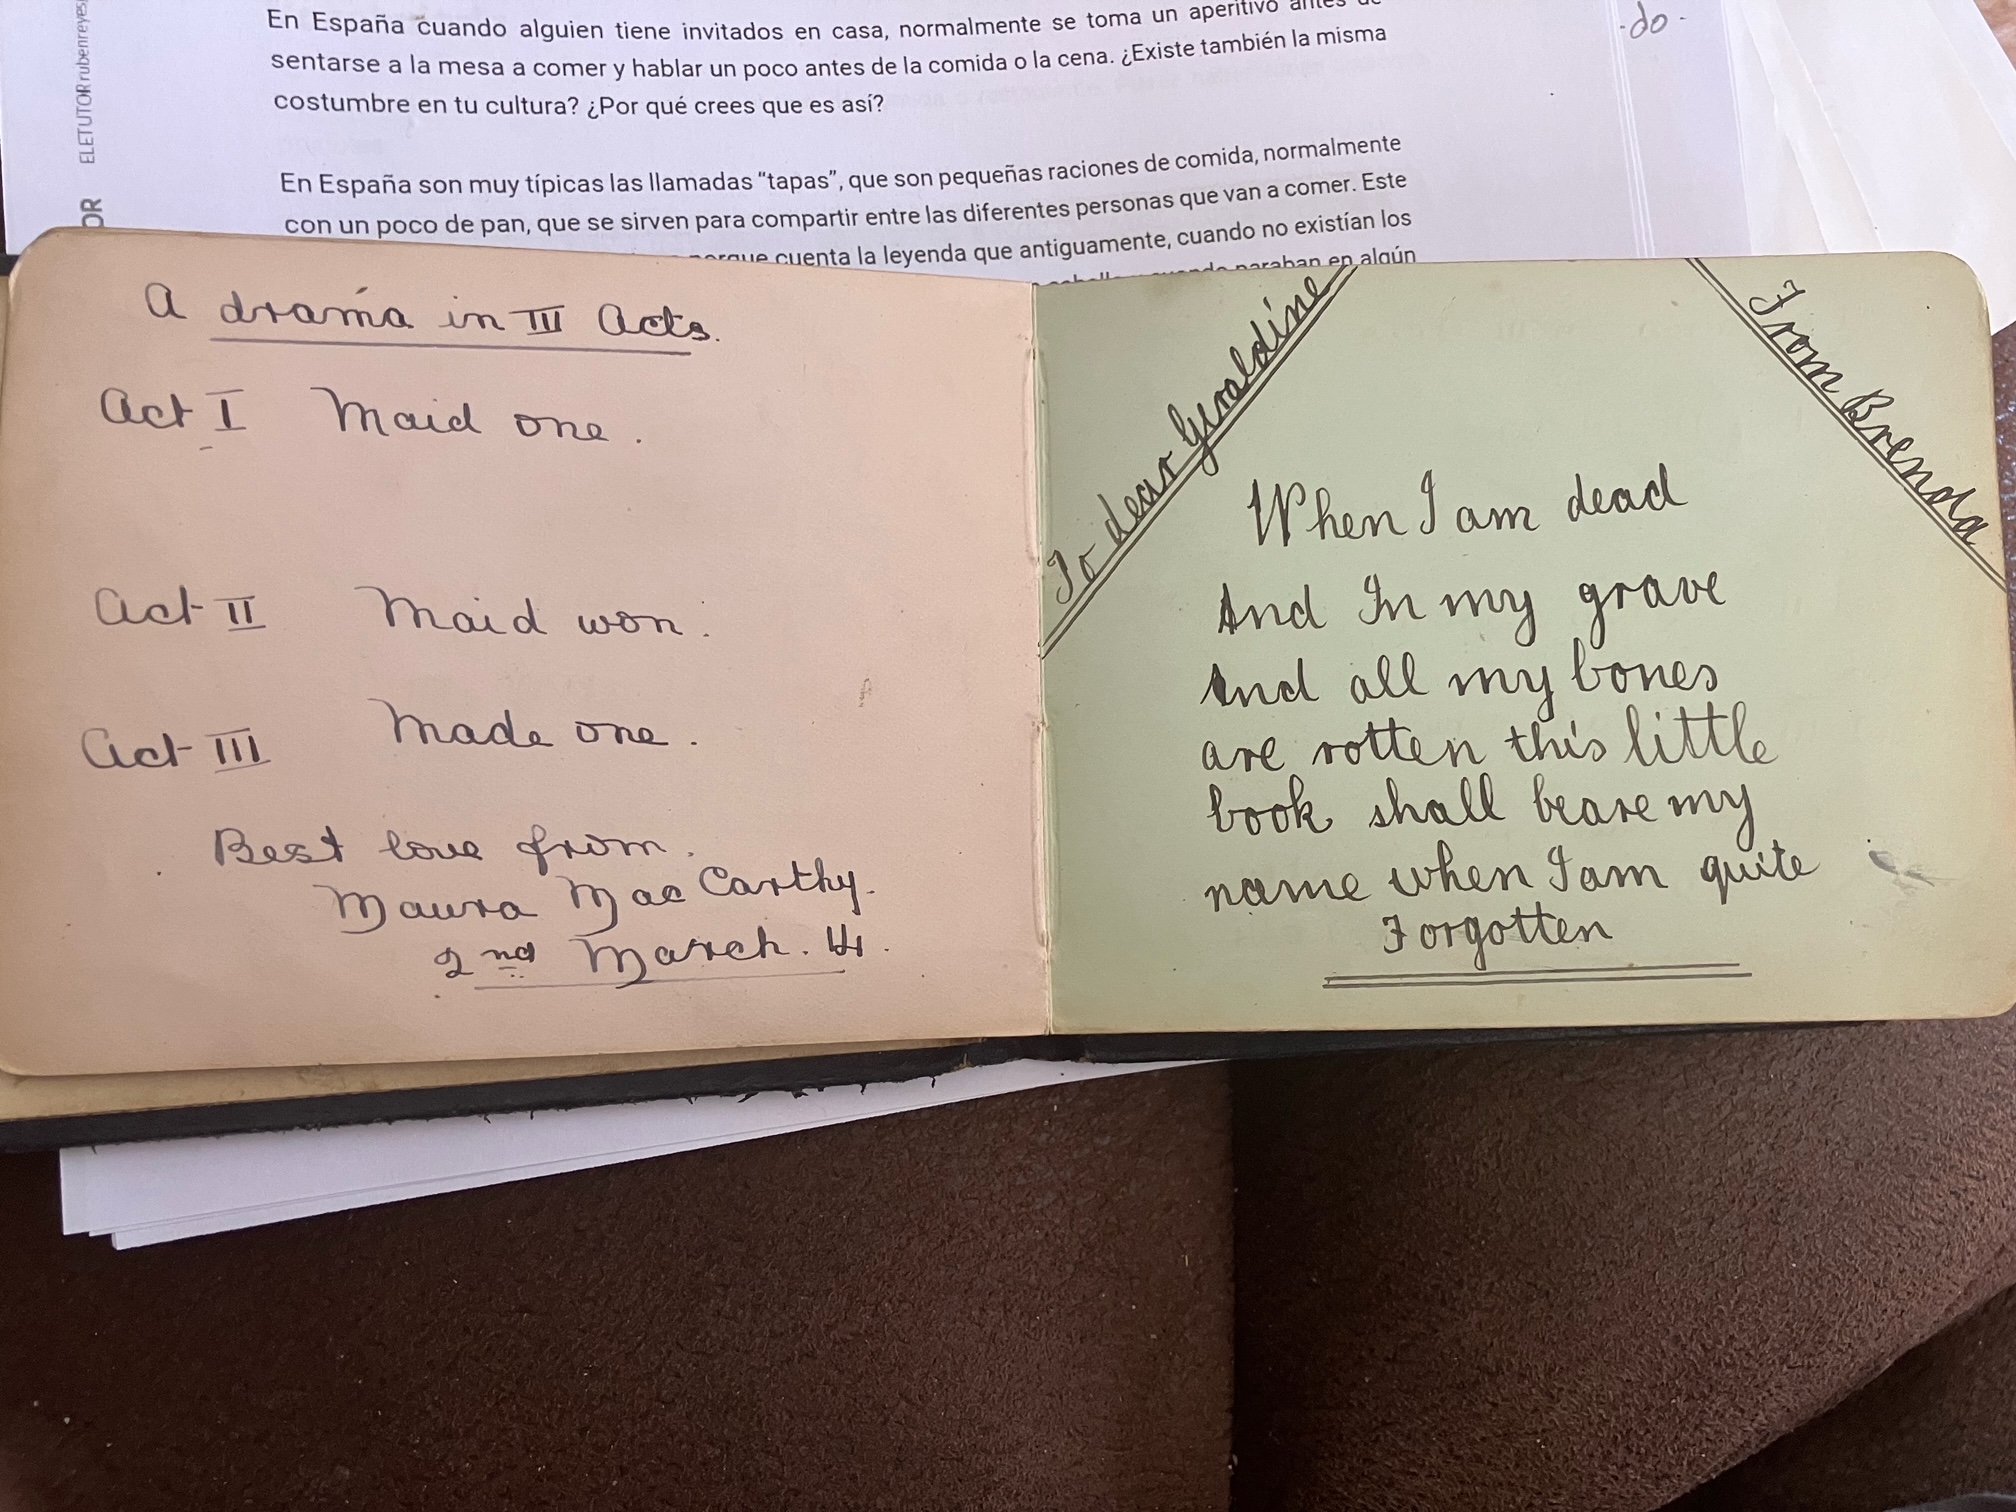 En España cuando alguien tiene invitados en casa, normalmente se toma un aperitivo antes de
sentarse a la mesa a comer y hablar un poco antes de la comida o la cena. ¿Existe también la misma
costumbre en tu cultura? ¿Por qué crees que es así?
En España son muy típicas las llamadas “tapas”, que son pequeñas raciones de comida, normalmente
con un poco de pan, que se sirven para compartir entre las diferentes personas que van a comer. Este
porque cuenta la leyenda que antiguamente, cuando no existían los
paraban en algún
ELETUTOR rubenreyes
OR
-do-
A drama in III Acts.
Act I Maid one.
Act II Maid won.
Act III Made one.
Best love from
Maura MacCarthy.
2nd March. 44.
To dear Geraldine
From Brenda
When I am dead
And In my grave
And all my bones
are rotten this little
book shall beare my
name when I am quite
Forgotten